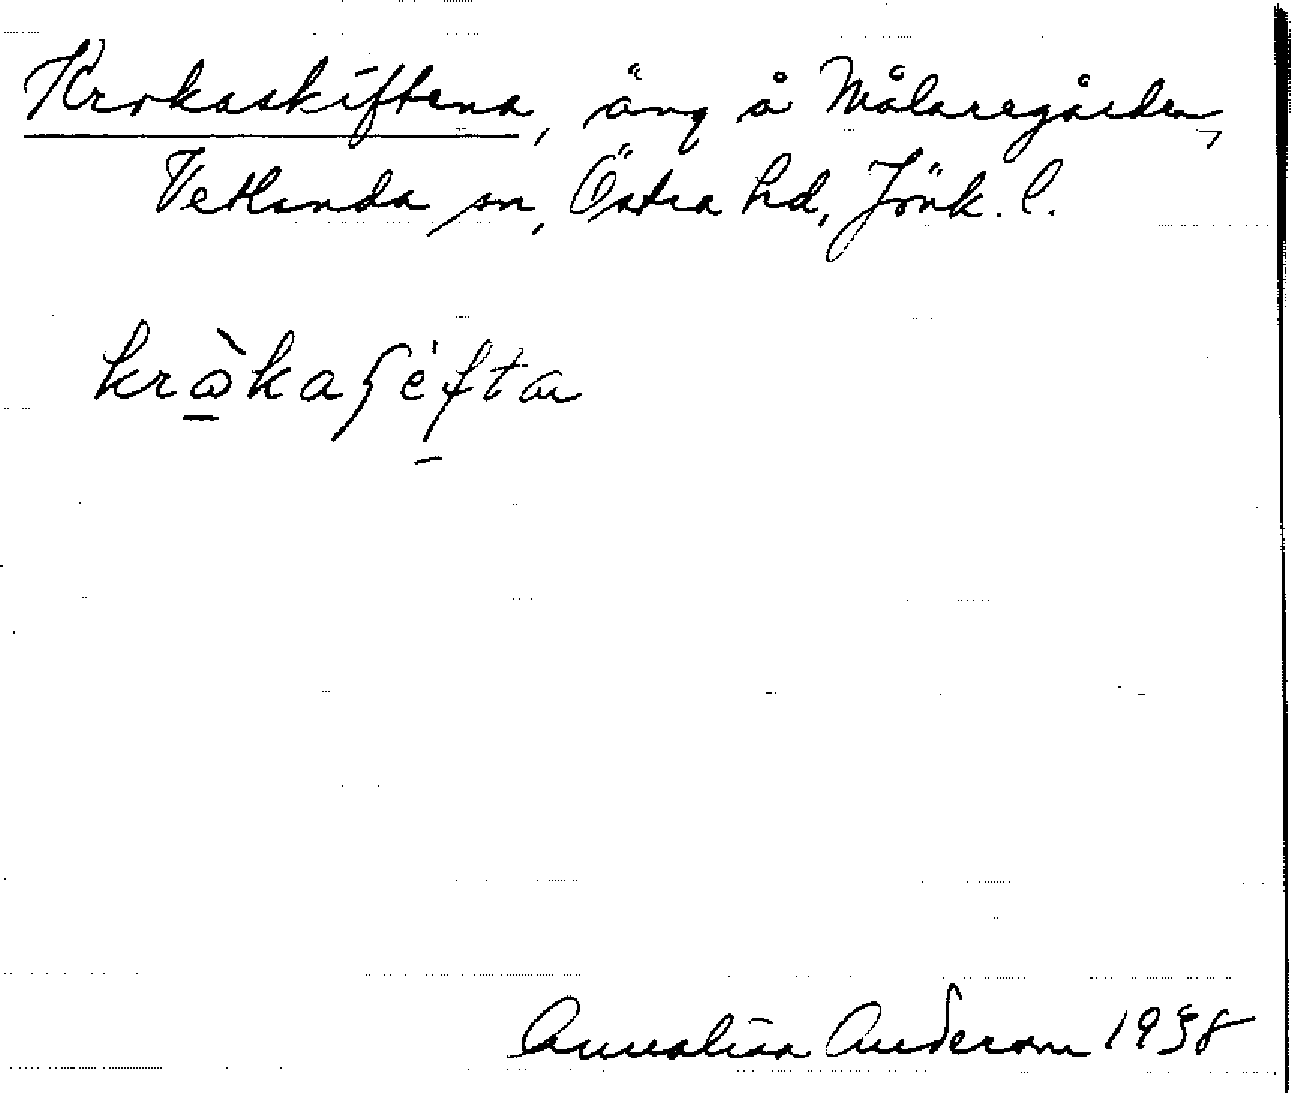 Krokaskiftena, äng å Målaregården,
Vetlanda sn, Östra hd, Jönk. l.
kròkaʃèfta
Annalisa Anderson 1938